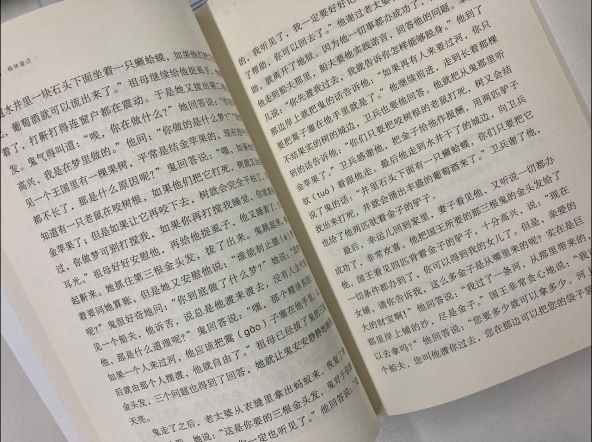 格林童话
水井里一块石头下面坐着一只癞蛤蟆，如果他们把
，葡萄酒就可以流出来了。”祖母继续给他捉虱子，
着了，打鼾打得连窗户都在震动。于是她又拔出第二
发。鬼气得叫道：“唉，你在做什么？”她回答说：
高兴，我是在梦里做的。”他问：“你做的是什么梦？”
见一个王国里有一棵果树，平常是结金苹果的，现在
都不长了，那是什么原因呢？”鬼回答说：“嘿，
知道有一只老鼠在咬树根，如果他们把它打死，树就又
金苹果了；但是如果让它再咬下去，树就会完全干枯了，
过，你做梦可别打搅我，如果你再打搅我睡觉，
耳光。”祖母好好安慰他，再给他捉虱子，他又睡着了，
起鼾来。她抓住第三根金头发，拔了出来。鬼跳起来，
着要同她算账，但是她又安慰他说：“谁能制止噩(è)
呢？”鬼很好奇地问：“你到底做了什么梦？”她说：
见一个船夫，他诉苦，说总是他渡来渡去，没有人去代替
他，那是什么道理呢？”鬼回答说：“嘿，那个糊涂
如果一个人来过河，他应该把篙(gāo)子塞在他手里，
后就由那个人摆渡，他就自由了。”祖母已经拔了
金头发，三个问题也得到了回答，她就让鬼安安静静地
天亮。
鬼走了之后，老太婆从衣缝里拿出蚂蚁来，恢复了
她说：“这是你要的三根金头发，鬼对于你
一定也听见了。”他回答说：
的，我听见了，我一定要好好记
了帮助，你可以回去了。”他谢过老太婆
助，就离开了地狱。因为他一切事都办成功了，
他走到船夫那里，船夫要他实践诺言，回答他的问题。
说：“你先渡我过去，我就告诉你怎样能够脱身。”他到了
那边岸上就把鬼的话告诉他：“如果再有人来要过河，你只
要把篙子塞在他手里就走了。”他继续前进，走到长着那棵
不结果实的树的城边，卫兵也要他回答。他就把从鬼那里听
到的话告诉他：“你们只要把咬树根的老鼠打死，树又会结
金苹果了。”卫兵感谢他，把金子给他作报酬，用两匹驴子
驮(tuó)着跟他走。最后他走到水井干了的城边，向卫兵
说了鬼的话：“井里石头下面有一只癞蛤蟆，你们只要把它
找出来打死，井就会涌出丰盛的葡萄酒来了。”卫兵谢了他，
也给了他两匹驮着金子的驴子。
最后，幸运儿回到家里，妻子看见他，又听说一切都办
成功了，非常欢喜。他把国王所要的那三根鬼的金头发给了
他，国王看见四匹背着金子的驴子，十分高兴，说：“现在
一切条件都办到了，你可以得到我的女儿了。但是，亲爱的
女婿，请你告诉我，这么多金子是从哪里来的呢？实在是巨
大的财宝啊！”他回答说：“我过了一条河，从那里带来的，
那里岸上铺的沙，尽是金子。”国王非常贪心地说：“我
以去拿吗？”他回答说：“您要多少就可以拿多少。河上
个船夫，您叫他渡你过去，您在那边可以把您的袋子装